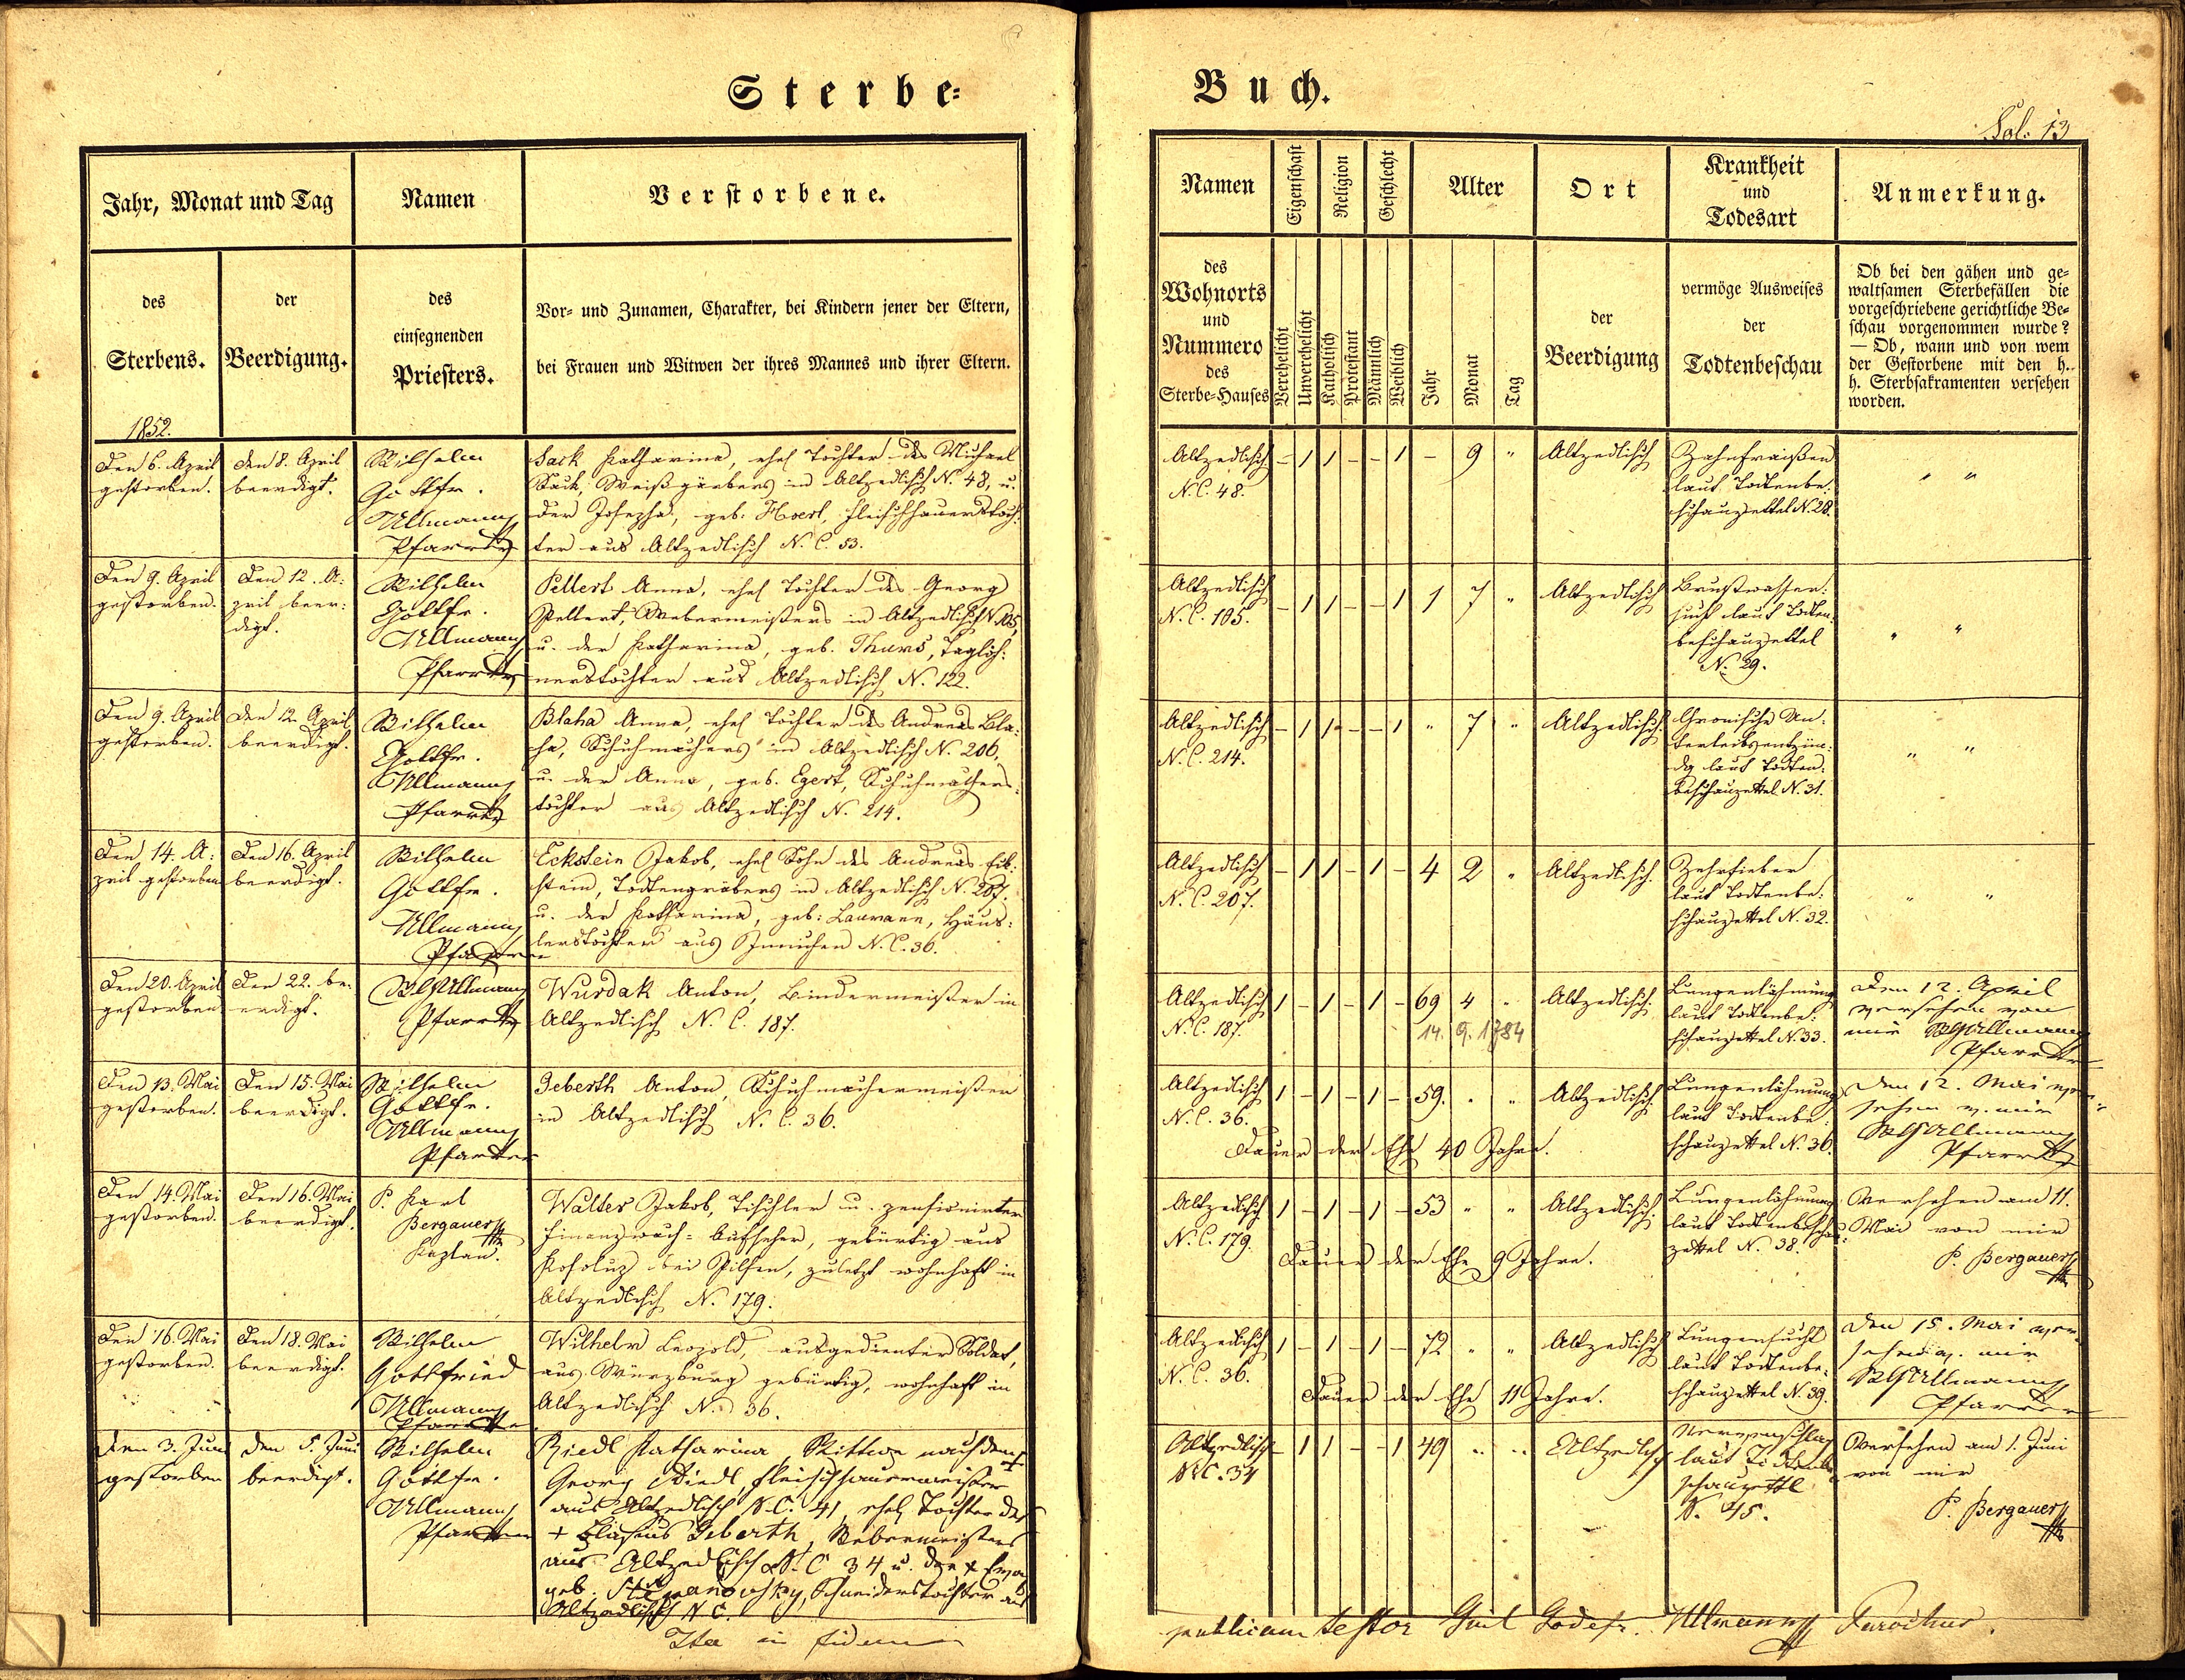 Sterbe=
Buch.
Fol. 13
Jahr, Monat und Tag
Namen
Verstorbene.
des
Sterbens.
der
Beerdigung.
des
einsegnenden
Priesters.
Vor- und Zunamen, Charakter, bei Kindern jener der Eltern,
bei Frauen und Witwen der ihres Mannes und ihrer Eltern.
Namen
Eigenschaft
Religion
Geschlecht
Alter
Ort
Krankheit
und
Todesart
Anmerkung.
des
Wohnorts
und
Nummero
des
Sterbe=Hauses
Verehelicht
Unverehelicht
Katholisch
Protestant
Männlich
Weiblich
Jahr
Monat
Tag
der
Beerdigung
vermöge Ausweises
der
Todtenbeschau
Ob bei den gähen und ge=
waltsamen Sterbefällen die
vorgeschriebene gerichtliche Be=
schau vorgenommen wurde?
— Ob, wann und von wem
der Gestorbene mit den h.
h. Sterbsakramenten versehen
worden.
1852.
Den 6. April
gestorben.
den 8. April
beerdigt.
Wilhelm
Gottfr.
Ullmann
Pfarrer
Sack Katharina, ehel Tochter des Michael
Sack, Weißgärbers in Altzedlisch N. 48, u.
der Josepha, geb. Hoerl, Fleischhauerstoch=
ter aus Altzedlisch N. C. 53.
Altzedlisch
N. C. 48.
- 1 1 - - 1 - 9 "
Altzedlisch
Zahnfraißen
laut Todtenbe:
schauzettel N. 28.
" "
Den 9. April
gestorben.
Den 12. A:
pril beer:
digt.
Wilhelm
Gottfr.
Ullmann
Pfarrer
Pellert Anna, ehel Tochter des Georg
Pellert, Webermeisters in Altzedlisch N. 105,
u. der Katharina, geb. Thurs, Taglöh:
nerstochter aus Altzedlisch N. 122.
Altzedlisch
N. C. 105.
- 1 1 - - 1 1 7 "
Altzedlisch
Brustwasser:
sucht laut Todten:
beschauzettel
N. 29.
" "
Den 9. April
gestorben.
Den 12. April
beerdigt.
Wilhelm
Gottfr.
Ullmann
Pfarrer
Blaha Anna, ehel Tochter des Andreas Bla:
ha, Schuhmachers in Altzedlisch N. 206,
u. der Anna, geb. Egert, Schuhmachers:
tochter aus Altzedlisch N. 214.
Altzedlisch
N. C. 214.
- 1 1 - - 1 " 7 "
Altzedlisch.
Chronische Un:
terleibsentzün:
dg laut Todten:
beschauzettel N. 31.
" "
Den 14. A:
pril gestorben
Den 16. April
beerdigt.
Wilhelm
Gottfr.
Ullmann
Pfarrer
Eckstein Jakob, ehel Sohn des Andreas Eck:
stein, Todtengräbers in Altzedlisch N. 207.
u. der Katharina, geb: Laumann, Häus:
lerstochter aus N. C. 36.
Altzedlisch
N. C. 207.
- 1 1 - 1 - 4 2 "
Altzedlisch.
Zehrfieber
laut Todtenbe:
schauzettel N. 32.
" "
Den 20. April
gestorben
Den 22. be:
erdigt.
WGUllmann
Pfarrer
Wurdak Anton, Bindermeister in
Altzedlisch N. C. 187.
Altzedlisch
N. C. 187.
1 - 1 - 1 - 69 4 "
14. 9. 1784
Altzedlisch.
Lungenlähmung
laut Todtenbe:
schauzettel N. 33.
Den 12. April
versehen von
mir WGUllmann
Pfarrer
Den 13. Mai
gestorben.
Den 15. Mai
beerdigt.
Wilhelm
Gottfr.
Ullmann
Pfarrer
Geberth Anton, Schuhmachermeister
in Altzedlisch N. C. 36.
Altzedlisch
N. C. 36.
1 - 1 - 1 - 59. " "
Dauer der Ehe 40 Jahre.
Altzedlisch.
Lungenlähmung
laut Todtenbe:
schauzettel N. 36.
Den 12. Mai ver=
sehen v. mir
WGUllmann
Pfarrer
Den 14. Mai
gestorben.
Den 16. Mai
beerdigt.
P. Karl
Bergauer
Kaplan.
Walter Jakob, Tischler u. pensionirter
Finanzwach=Aufseher, gebürtig aus
bei Pilsen, zuletzt wohnhaft in
Altzedlisch N. 179.
Altzedlisch
N. C. 179.
1 - 1 - 1 - 53 " "
Dauer der Ehe 9 Jahre.
Altzedlisch.
Lungenlähmung
laut Todtenbeschau:
zettel N. 38.
Versehen am 11.
Mai von mir
P. Bergauer
Den 16. Mai
gestorben.
Den 18. Mai
beerdigt.
Wilhelm
Gottfried
Ullmann
Pfarrer
Wilhelm Leopold, ausgedienter Soldat,
aus Würzburg gebürtig, wohnhaft in
Altzedlisch N. 36.
Altzedlisch
N. C. 36.
1 - 1 - 1 - 72 " "
Dauer der Ehe 11 Jahre.
Altzedlisch
Lungensucht
laut Todtenbe:
schauzettel N. 39.
Den 15. Mai ver=
sehen v. mir
WGUllmann
Pfarrer
Den 3. Juni
gestorben
Den 5. Juni
beerdigt.
Wilhelm
Gottfr.
Ullmann
Pfarrer
Riedl Katharina, Wittwe nach dem †
Georg Riedl, Fleischhauermeister
aus Altzedlisch N. C. 41, ehel Tochter des
† Geberth, Webermeisters
aus Altzedlisch N. C 34 u. der †
geb. Schneiderstochter aus
Altzedlisch N C.
Altzedlisch
N C. 34
- 1 1 - - 1 49 " "
Altzedlisch
Nervenschlag
laut Todtenbe
schauzettl
N. 45.
Versehen am 1. Juni
von mir
P. Bergauer
Ita in fidem
publicam testor Guil Godefr. Ullmann Parochus.